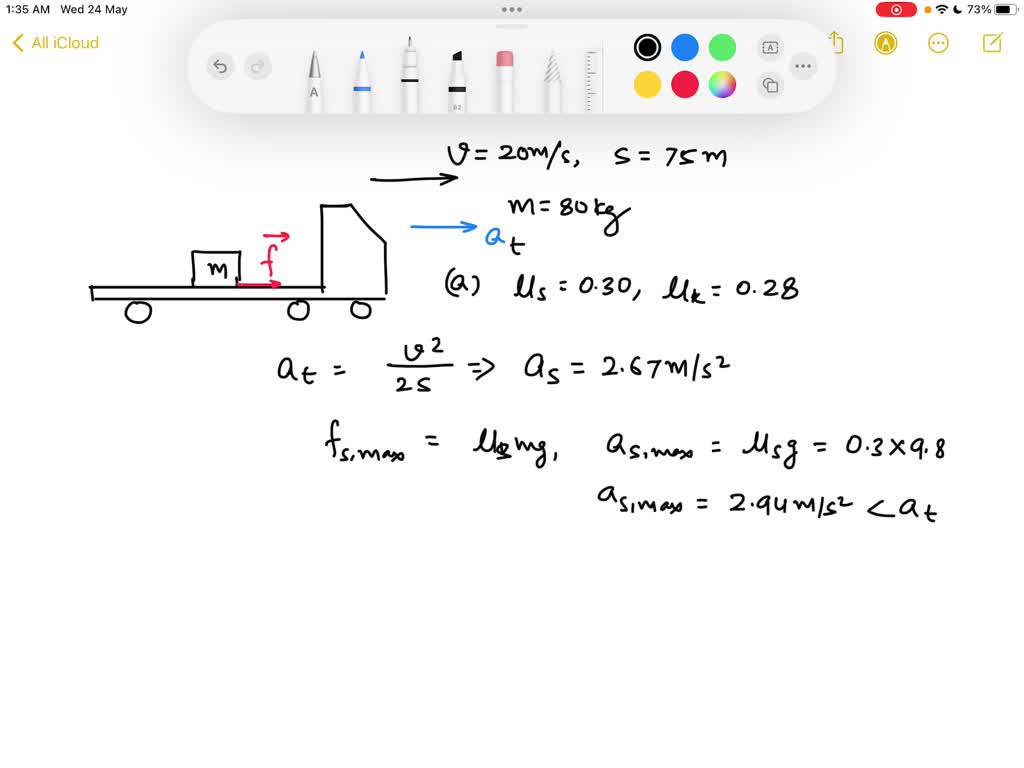 1:35 AM Wed 24 May
73%
All iCloud
A
62
A
A
v = 20m/s, s = 75m
m = 80kg
a t
m
f
(a) μs = 0.30, μk = 0.28
at = v²/2s => as = 2.67m/s²
fs,max = μsmg, as,max = μsg = 0.3×9.8
as,max = 2.94m/s² < at